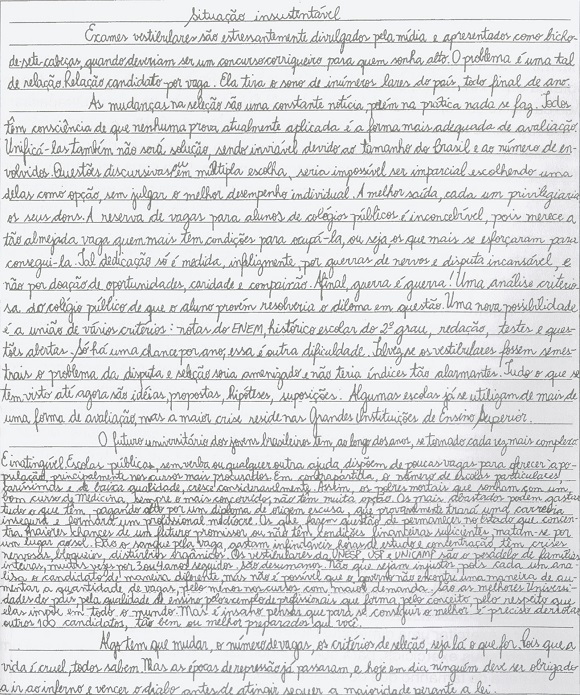 Situação insustentável
Exames vestibulares são estressantemente divulgados pela mídia e apresentados como bicho-
de-sete cabeças, quando deveriam ser um concurso corriqueiro para quem sonha alto. O problema é uma tal
de relação Relação candidato por vaga. Ela tira o sono de inúmeros lares do país, todo final de ano.
As mudanças na seleção são uma constante notícia, porém na prática nada se faz. Todos
têm consciência de que nenhuma prova atualmente aplicada é a forma mais adequada de avaliação.
Unificá-las também não será solução, sendo inviável devido ao tamanho do Brasil e ao número de en-
volvidos. Questões discursivas ou em múltipla escolha, seria impossível ser imparcial escolhendo uma
delas como opção, sem julgar o melhor desempenho individual. A melhor saída, cada um privilegiaria
os seus dons. A reserva de vagas para alunos de colégios públicos é inconcebível, pois merece a
tão almejada vaga quem mais tem condições para ocupá-la, ou seja, os que mais se esforçaram para
consegui-la. Tal dedicação só é medida, infelizmente, por guerras de nervos e disputa incansável, e
não por doação de oportunidades, caridade e compaixão. Afinal, guerra é guerra! Uma análise criterio-
sa do colégio público de que o aluno provém resolveria o dilema em questão. Uma nova possibilidade
é a união de vários critérios: notas do ENEM, histórico escolar do 2º grau, redação, testes e ques-
tões abertas. Só há uma chance por ano, essa é outra dificuldade. Talvez se os vestibulares fossem semes-
trais o problema da disputa e seleção seria amenizado e não teria índices tão alarmantes. Tudo o que se
tem visto até agora são idéias, propostas, hipóteses, suposições. Algumas escolas já se utilizam de mais de
uma forma de avaliação, mas a maior crise reside nas Grandes Instituições de Ensino Superior.
O futuro universitário dos jovens brasileiros tem, ao longo dos anos, se tornado cada vez mais complexo
E inatingível. Escolas públicas, sem verba ou qualquer outra ajuda dispõem de poucas vagas para oferecer a po-
pulação, principalmente nos cursos mais procurados. Em contrapartida, o número de escolas particulares,
caríssimas e de baixa qualidade, cresce consideravelmente. Assim, os pobres mortais que sonham com um
bom curso de Medicina, sempre o mais concorrido, não tem muita opção. Os mais abastados podem gastar
tudo o que têm, pagando alto por um diploma de origem escusa, que provavelmente trará uma carreira
insegura e formará um profissional medíocre. Os que fazem questão de permanecer no estado que concen-
tra maiores chances de um futuro promissor, ou não têm condições financeiras suficientes, matam-se por
um lugar ao sol. Dão o sangue pela vaga, gastam infindáveis horas de estudo e concentração, têm crises
nervosas, bloqueios, distúrbios orgânicos. Os vestibulares da UNESP, USP e UNICAMP são o pesadelo de famílias
inteiras, muitas vezes por 3 ou 4 anos seguidos. São desumanos. Não que sejam injustos, pois cada um ana-
lisa o candidato de maneira diferente, mas não é possível que o governo não encontre uma maneira de au-
mentar a quantidade de vagas, pelo menos nos cursos com maior demanda. São as melhores Universi-
dades do país pela qualidade de ensino, pelos exemplos de profissionais que forma, pelo conceito, pelo respeito que
elas impõem em todo o mundo. Mas é insano pensar que para se conseguir o melhor é preciso derrotar
outros 100 candidatos, tão bem ou melhor preparados que você.
Algo tem que mudar, o número de vagas, os critérios de seleção, seja lá o que for. Pois que a
vida é cruel, todos sabem. Mas as épocas de repressão já passaram, e hoje em dia ninguém deve ser obrigado
a ir ao inferno e vencer o diabo antes de atingir sequer a maioridade perante a lei.